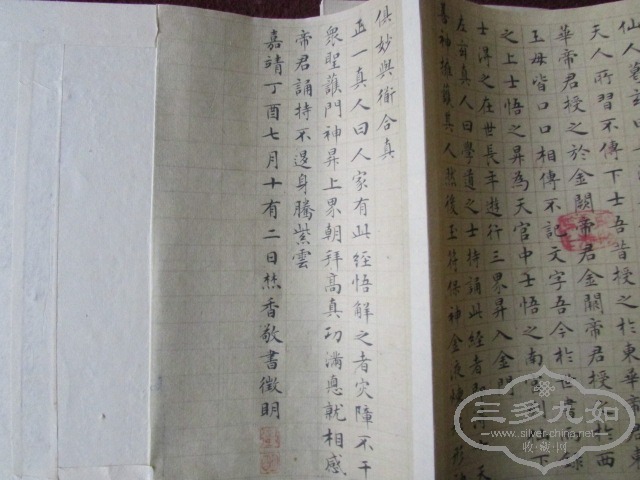 仙人葛玄曰
天人所習不傳下士吾昔授之於東華帝君東
華帝君授之於金闕帝君金闕帝君授之於西
王母皆口口相傳不記文字吾今於世書而錄
之上士悟之昇為天官中士悟之南下
士得之在世長年遊行三界昇入金門
左玄真人曰學道之士持誦此經者即得天
善神擁護其人然後玉符保神金液煉形神
俱妙與衜合真
正一真人曰人家有此經悟解之者灾障不干
衆聖護門神昇上界朝拜高真功滿惪就相感
帝君誦持不退身騰紫雲
嘉靖丁酉七月十有二日焚香敬書徵明
三多九如
www.silver-china.net
收·藏·网